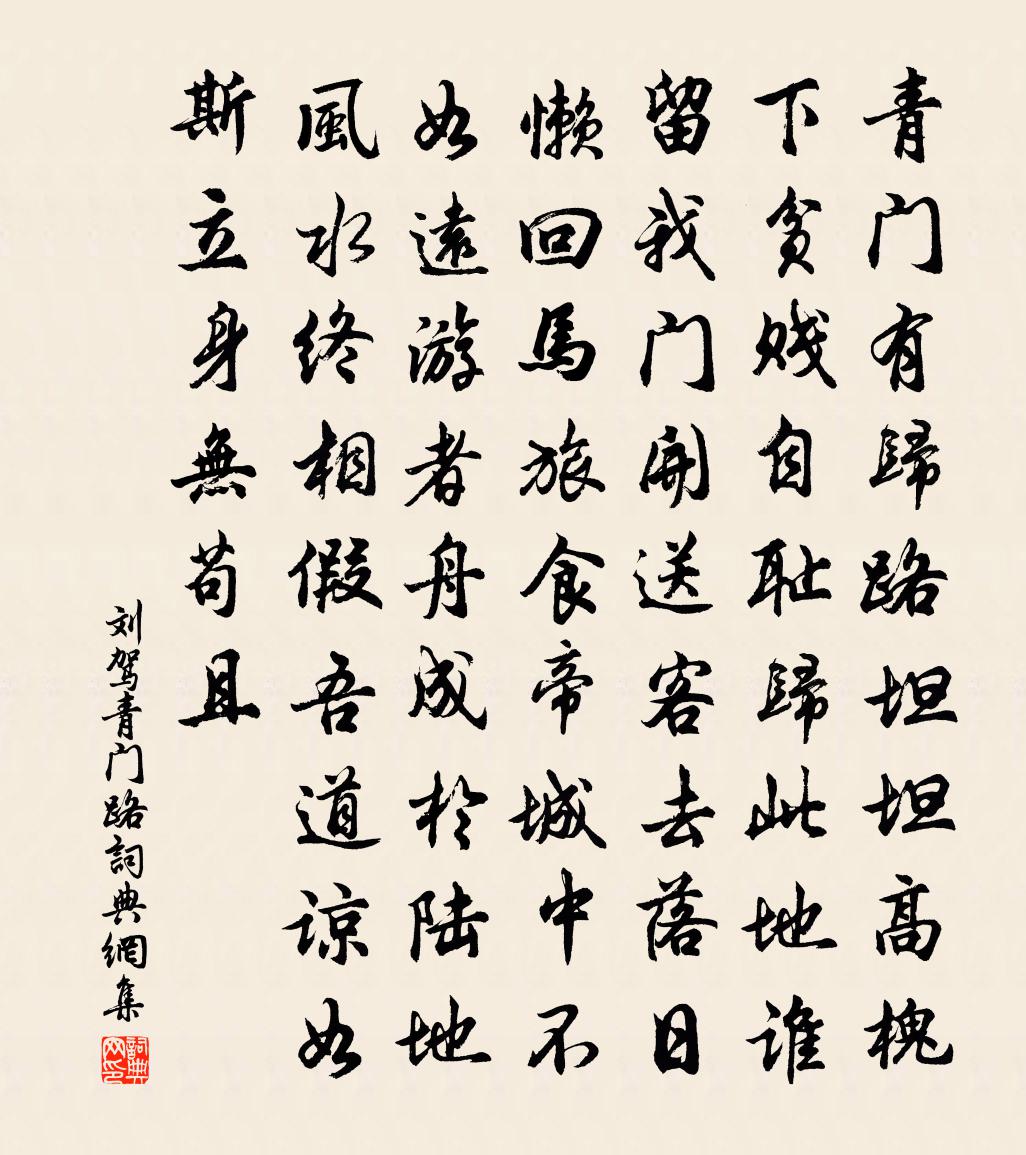 青门有歸路坦坦高槐
下貧賤自耻歸此地谁
留我门開送客去落日
懒回馬旅食帝城中不
如遠游者舟成於陆地
風水终相假吾道谅如
斯立身無苟且
刘驾青门路詞典網集
詞典网印